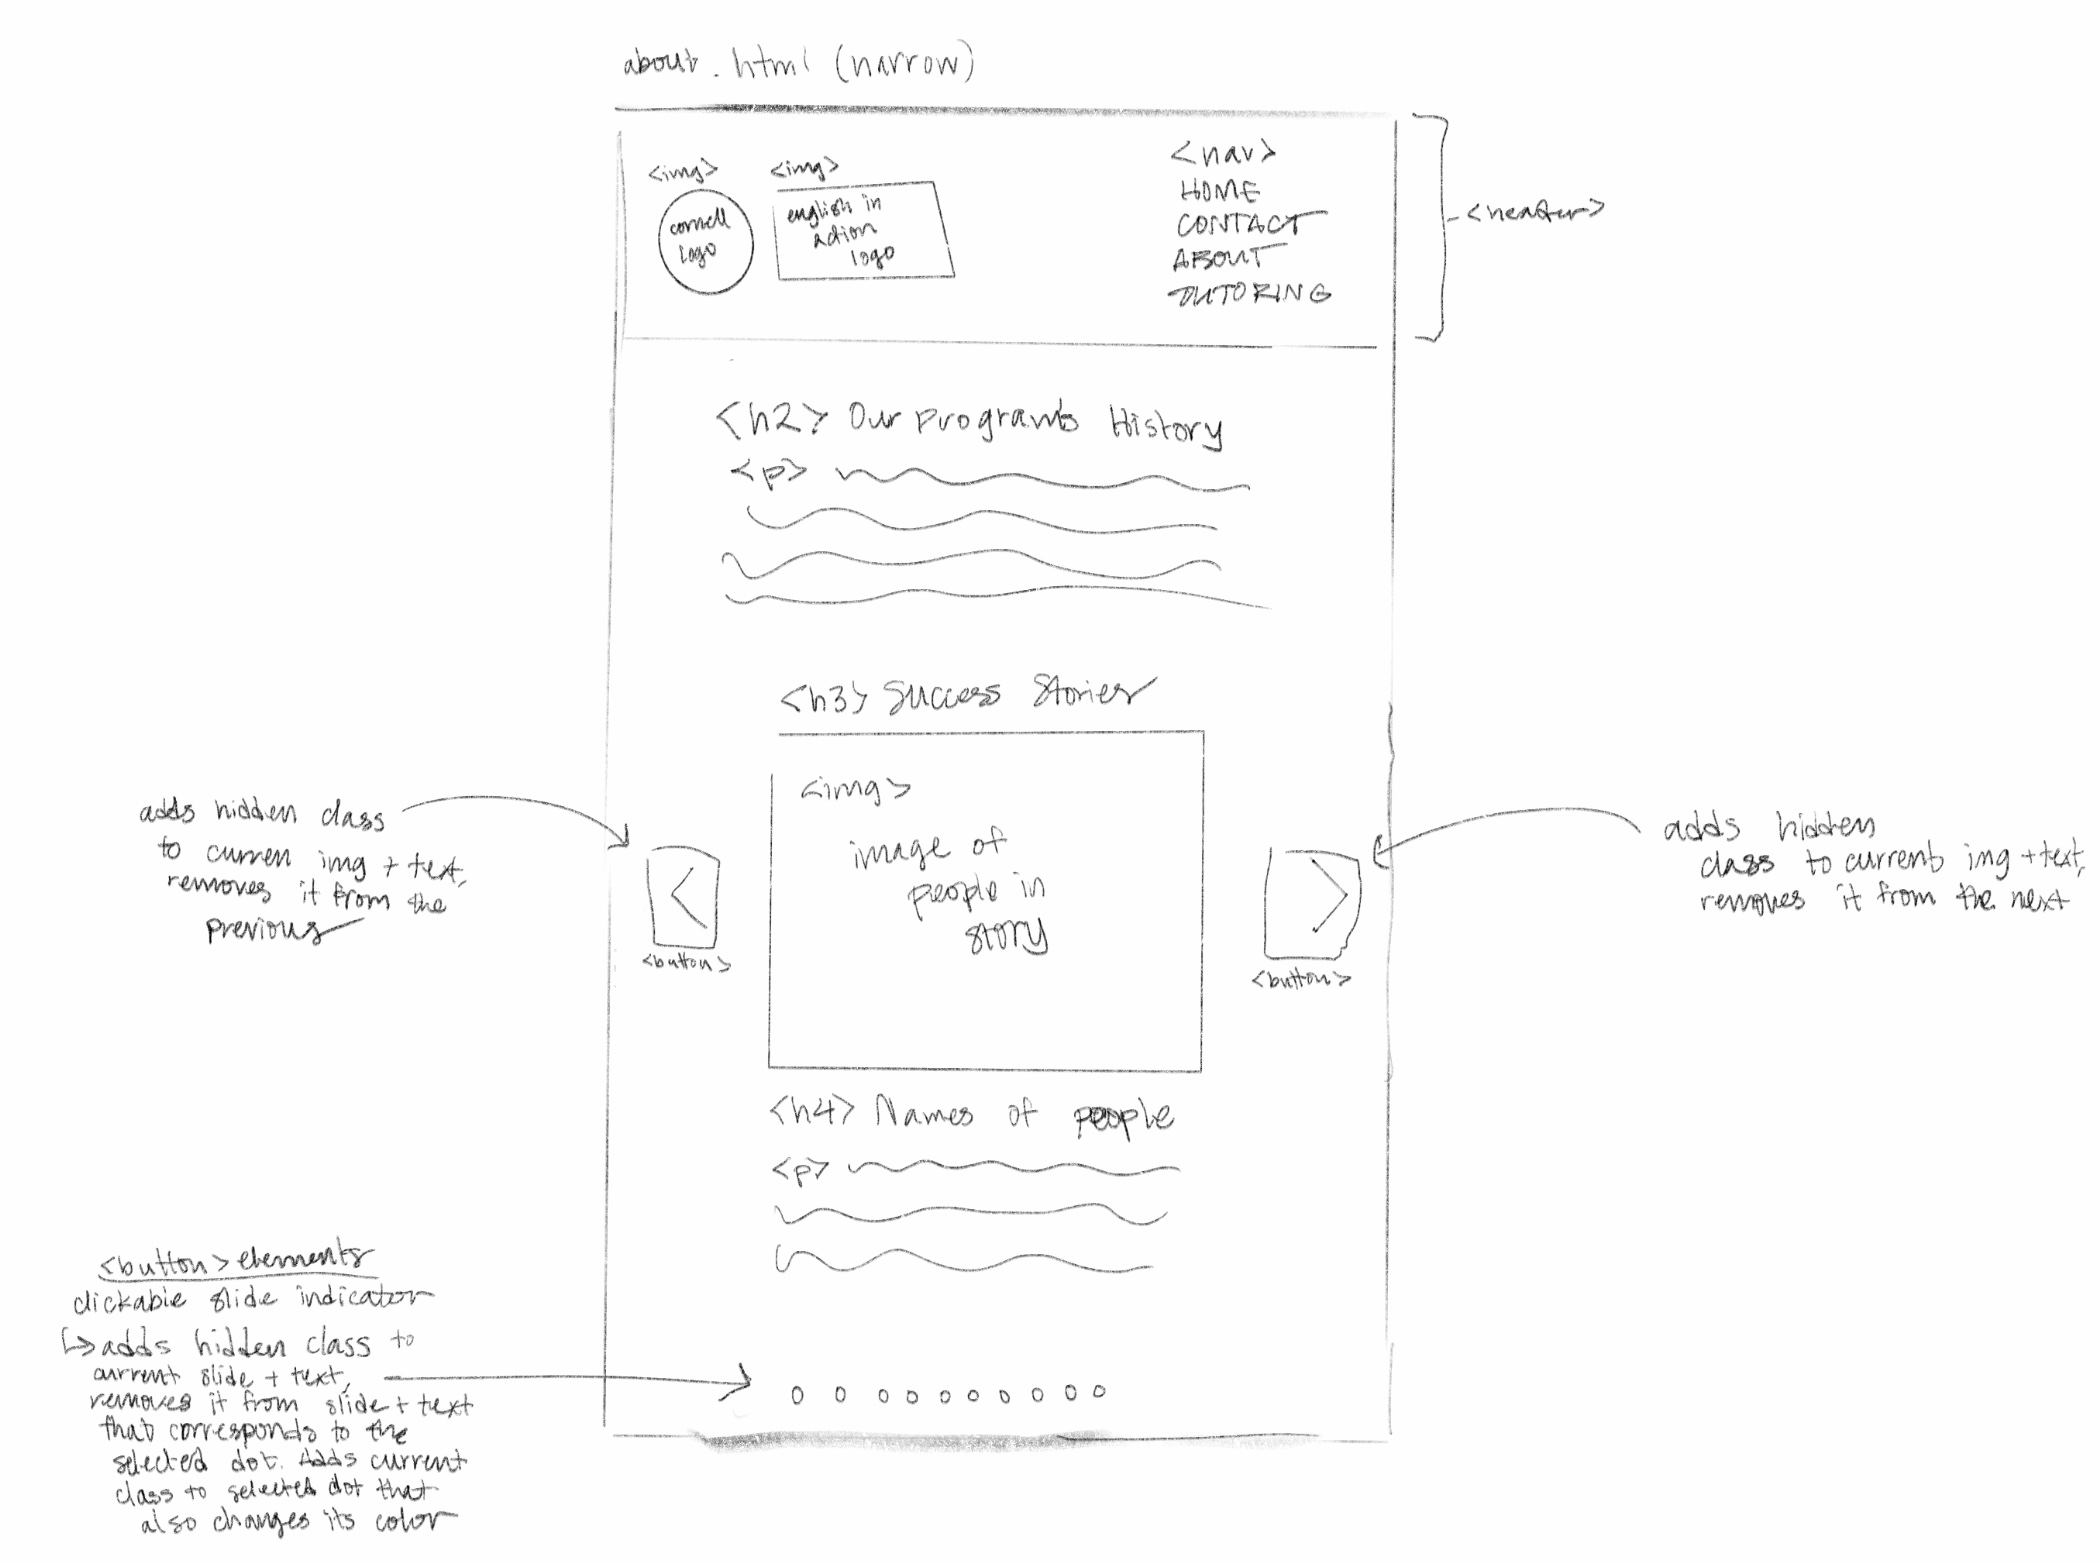 about.html (narrow)
<img>
<img>
cornell
logo
english in
action
logo
<nav>
HOME
CONTACT
ABOUT
TUTORING
<header>
<h2> Our Program's History
<p>
<h3> Success Stories
<img>
image of
people in
story
adds hidden class
to curren img + text,
removes it from the
previous
<
<button>
>
<button>
adds hidden
class to current img + text,
removes it from the next
<h4> Names of people
<p>
<button> elements
clickable slide indicator
↳ adds hidden class to
current slide + text,
removes it from slide + text
that corresponds to the
selected dot. Adds current
class to selected dot that
also changes its color